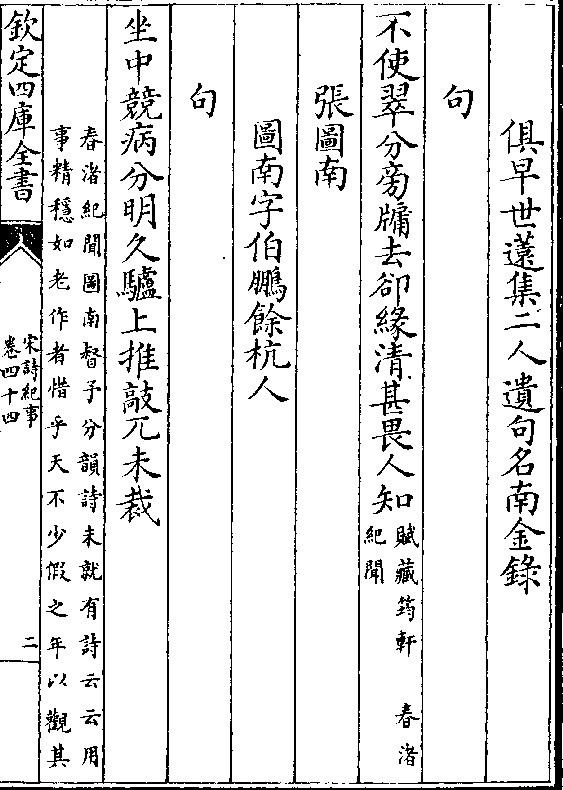 俱早世薳集二人遺句名南金錄
句
不使翠分旁牖去卻緣清甚畏人知賦藏筠軒 春渚
紀聞
張圖南
圖南字伯鵬餘杭人
句
坐中競病分明久驢上推敲兀未裁
春渚紀聞圖南督予分韻詩未就有詩云云用
事精穩如老作者惜乎天不少假之年以觀其
欽定四庫全書
宋詩紀事
卷四十四
二